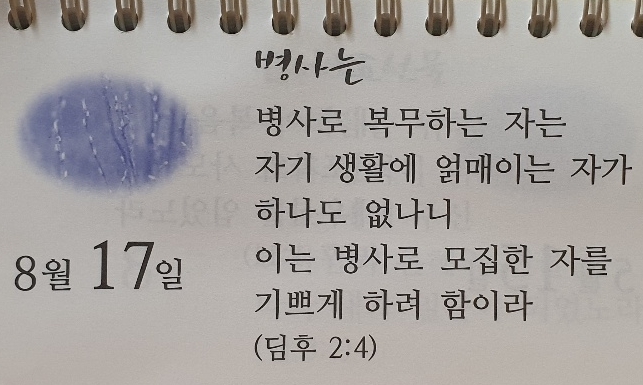 병사는
병사로 복무하는 자는
자기 생활에 얽매이는 자가
하나도 없나니
이는 병사로 모집한 자를
기쁘게 하려 함이라
(딤후 2:4)
8월 17일